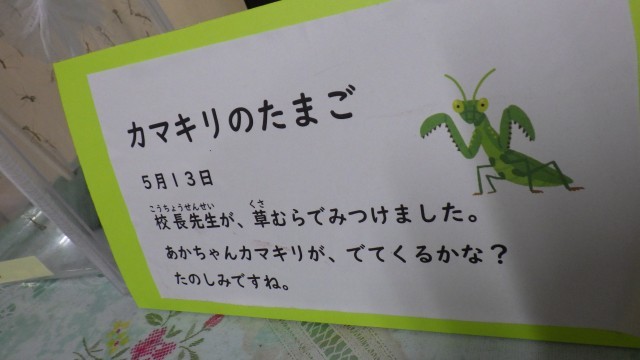 カマキリのたまご
5月13日
こうちょうせんせい くさ
校長先生が、草むらでみつけました。
あかちゃんカマキリが、でてくるかな？
たのしみですね。